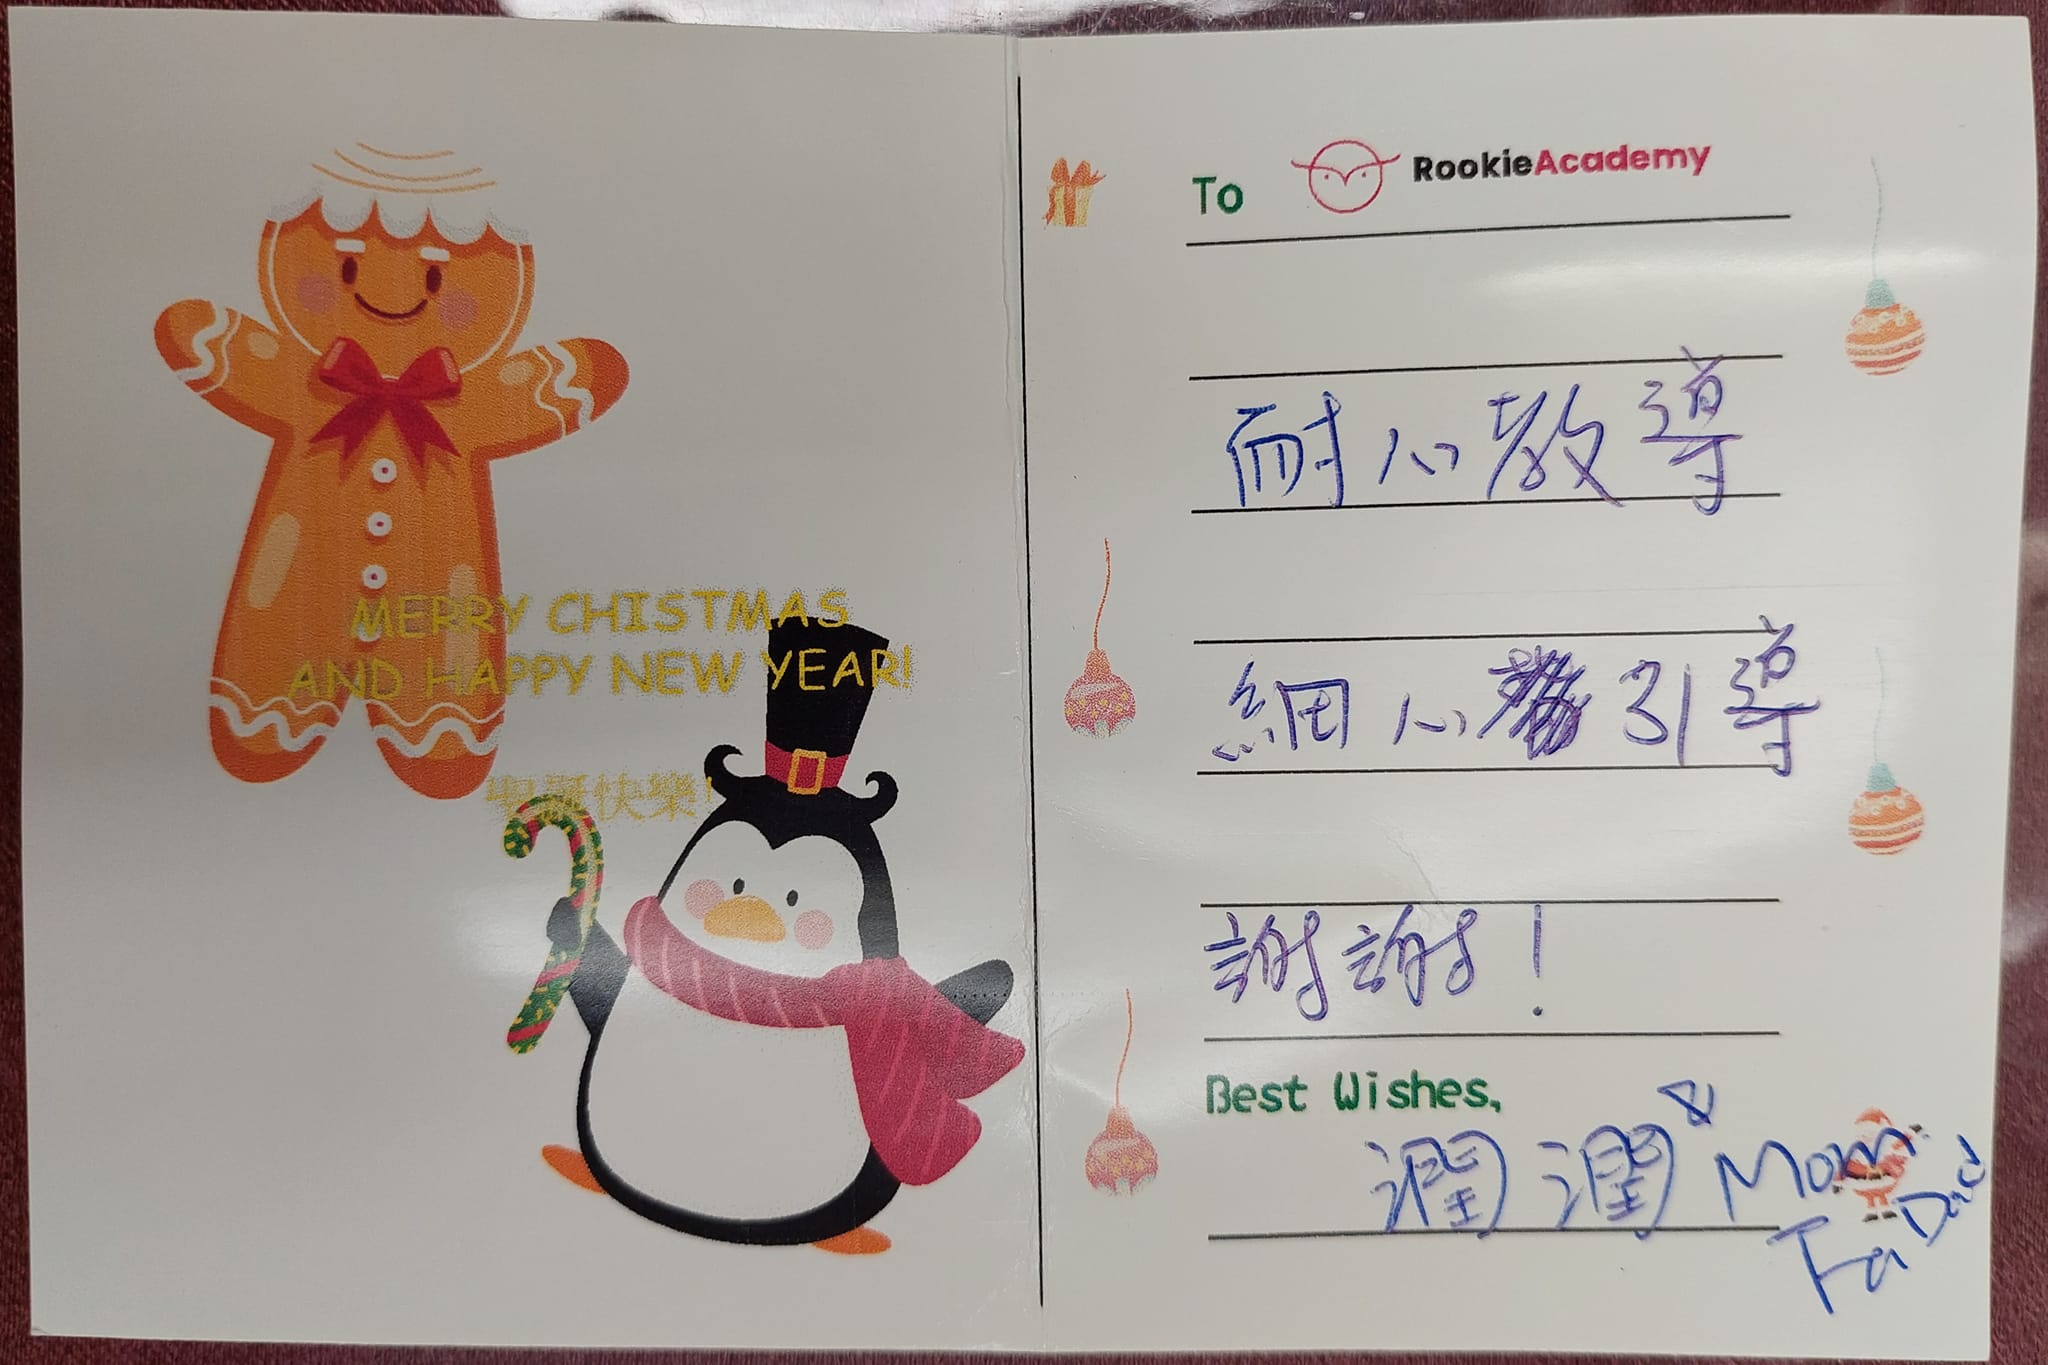 MERRY CHISTMAS
AND HAPPY NEW YEAR!
聖誕快樂!
To RookieAcademy
耐心教導
細心引導
謝謝!
Best Wishes,
潤潤 & Mom
Dad